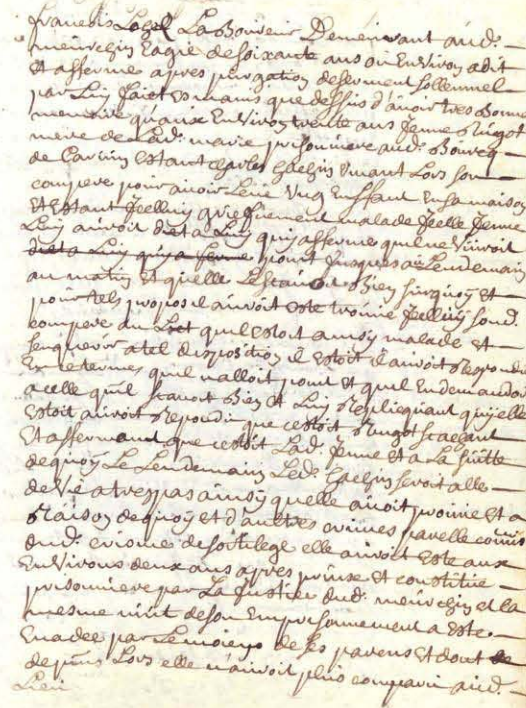 francois Lohel Laboureur Demeurant aud.
meurchin Eagie de soixante ans ou Environ a dit
Et afferme apres purgation de serment sollemnel
par Luy faict Es mains que dessus d'avoir tres bonne
memoire qu'aux Environ trente ans Jenne Rugot
mere de Lad. marie prisonniere aud. Bourcq
de Carvin Estant Charles hachin vivant Lors son
compere pour avoir Levé Ung Enffant En sa maison
Et Estant Jcelluy griefvement malade Jcelle Jenne
Luy auroit diet a Luy quy afferme quil ne vivroit
point Jusques a Lendemain
au matin Et quelle Le scavoit Bien surquoy Et
pour tels propos il auroit este trouvé Jcelluy sond.
compere au Lict quil Estoit ainsy malade Et
a tel disposition il Estoit il auroit Respondu
En termes quil n'alloit point Et quil En demandoit
a celle quil scavoit Bien Et Luy Replicquant quy elle
Estoit auroit Repondu que cestoit Rugot scachant
Et affermant que cestoit Lad. Jenne Et a La suitte
de quoy Le Lendemain Led. hachin seroit allé
de vie a trespas ainsy quelle avoit promie Et a
Raison de quoy Et d'aultres crimes par elle comis
dud. crisme de sortilege elle auroit Este aux
Environs deux ans apres prinse Et constituée
prisonniere par La Justice dud. meurchin Et la
mesme nuit de son Emprisonnement a Este
Evadée par Le moien de ses parens Et dont
depuis Lors elle n'auroit plus comparu aud.
Lieu